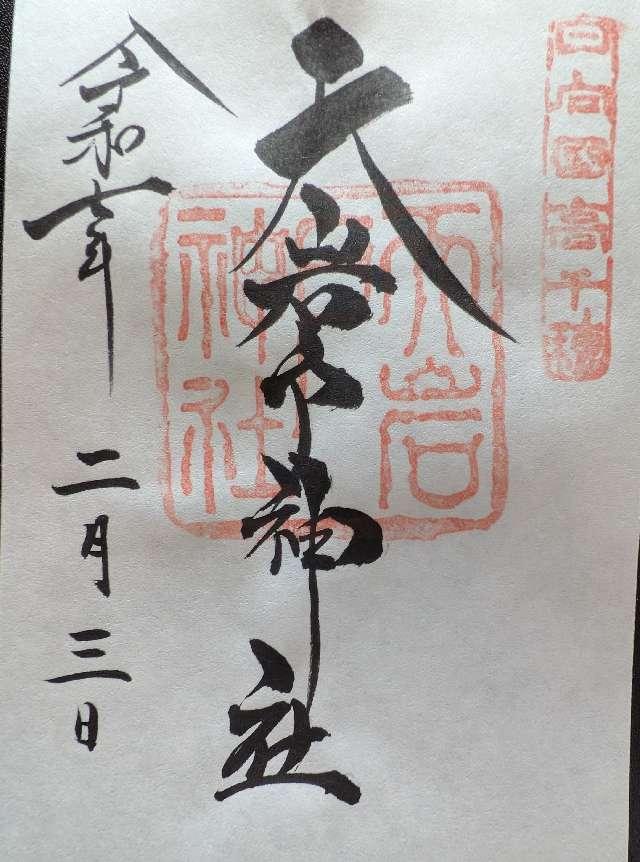 日向國高千穂
天岩戸神社
天岩戸神社
令和七年
二月三日